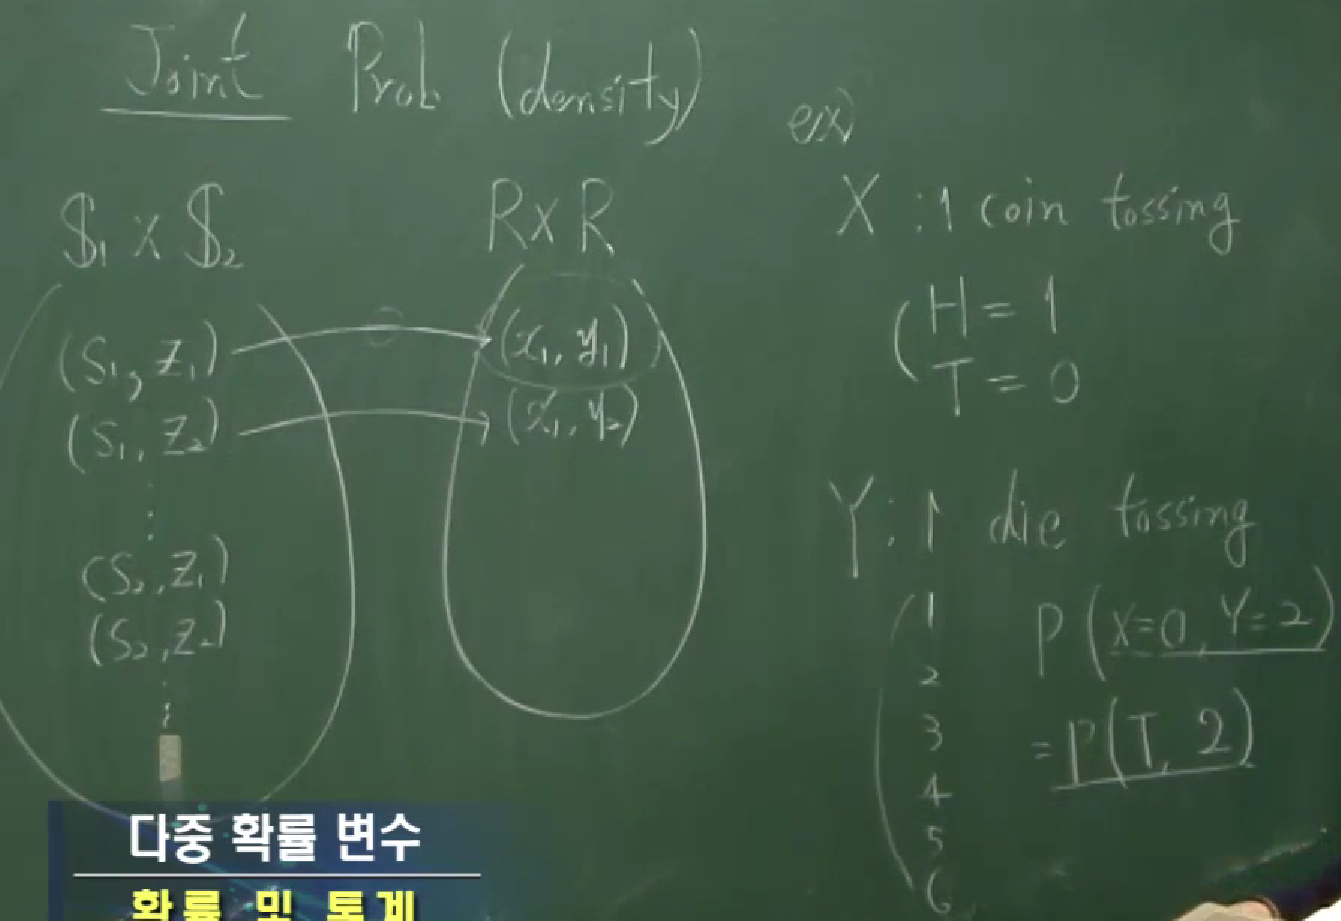 Joint Prob (density)
$₁ x $₂
R x R
(S₁, Z₁)
(S₁, Z₂)
(S₂, Z₁)
(S₂, Z₂)
(x₁, y₁)
(x₁, y₂)
ex)
X : 1 coin tossing
H = 1
T = 0
Y : 1 die tossing
1
2
3
4
5
6
P(X=0, Y=2)
= P(T, 2)
다중 확률 변수
확률 및 통계